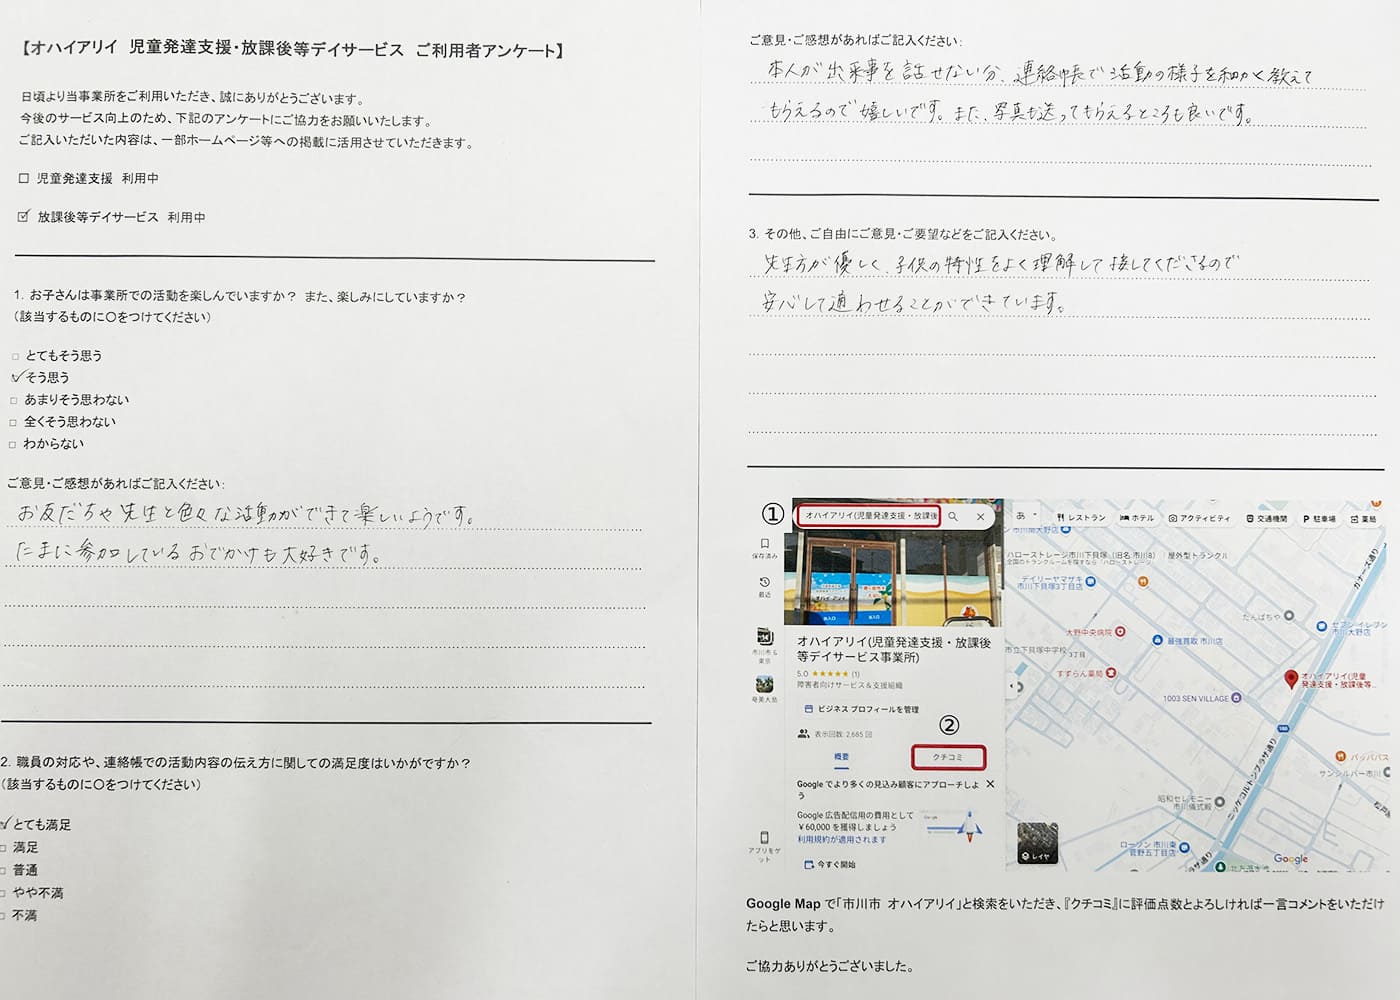 【オハイアリイ 児童発達支援・放課後等デイサービス ご利用者アンケート】
日頃より当事業所をご利用いただき、誠にありがとうございます。
今後のサービス向上のため、下記のアンケートにご協力をお願いいたします。
ご記入いただいた内容は、一部ホームページ等への掲載に活用させていただきます。
□ 児童発達支援 利用中
☑ 放課後等デイサービス 利用中
1. お子さんは事業所での活動を楽しんでいますか? また、楽しみにしていますか?
(該当するものに〇をつけてください)
□ とてもそう思う
☑ そう思う
□ あまりそう思わない
□ 全くそう思わない
□ わからない
ご意見・ご感想があればご記入ください:
お友だちや先生と色々な活動ができて楽しいようです。
たまに参加しているおでかけも大好きです。
2. 職員の対応や、連絡帳での活動内容の伝え方に関しての満足度はいかがですか?
(該当するものに〇をつけてください)
☑ とても満足
□ 満足
□ 普通
□ やや不満
□ 不満
ご意見・ご感想があればご記入ください:
本人が出来事を話せない分、連絡帳で活動の様子を細かく教えて
もらえるので嬉しいです。また、写真も送ってもらえるところも良いです。
3. その他、ご自由にご意見・ご要望などをご記入ください。
先生方が優しく、子供の特性をよく理解して接してくださるので
安心して通わせることができています。
①
オハイアリイ(児童発達支援・放課後
保存済み
最近
市川市 &
東京
奄美大島
アプリをゲ
ット
オハイアリイ(児童発達支援・放課後
等デイサービス事業所)
5.0 ★★★★★ (1)
障害者向けサービス&支援組織
ビジネス プロフィールを管理
表示回数: 2,685 回
②
概要
クチコミ
Google でより多くの見込み顧客にアプローチしよ
う
Google 広告配信用の費用として
￥60,000 を獲得しましょう
利用規約が適用されます
今すぐ開始
あ
レストラン
ホテル
アクティビティ
交通機関
P 駐車場
薬局
市川南大野店
ハローストレージ市川下貝塚(旧名 市川8) | 屋外型トランクル
全国のトランクルームを探すなら「ハローストレージ」
デイリーヤマザキ
市川下貝塚3丁目店
たんぱちや
セブン-イレブン
市川大野店
大野中央病院
最強買取 市川店
市立下貝塚中学校
3丁目
すずらん薬局
オハイアリイ(児童
発達支援・放課後等...
1003 SEN VILLAGE
ガナーズ通り
ニッケコルトンプラザ通り
バッパバス
サンシルバー市川
昭和セレモニー
市川儀式殿
ローソン 市川東
菅野五丁目店
レイヤ
Google
Google Map で「市川市 オハイアリイ」と検索をいただき、『クチコミ』に評価点数とよろしければ一言コメントをいただけ
たらと思います。
ご協力ありがとうございました。